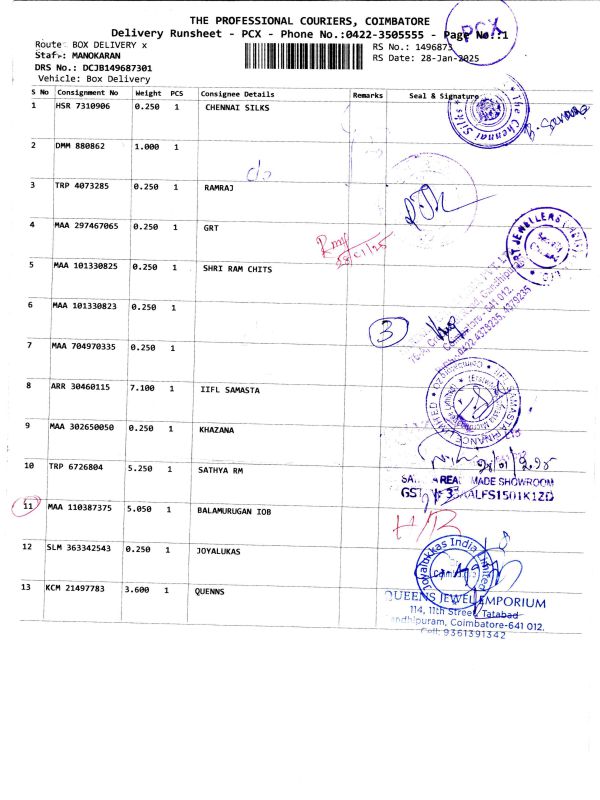 THE PROFESSIONAL COURIERS, COIMBATORE
Delivery Runsheet - PCX - Phone No.:0422-3505555 - Page No.:1
PCX
Route: BOX DELIVERY x
RS No.: 1496873
Staff: MANOKARAN
RS Date: 28-Jan-2025
DRS No.: DCJB149687301
Vehicle: Box Delivery
S No Consignment No Weight PCS Consignee Details Remarks Seal & Signature
1 HSR 7310906 0.250 1 CHENNAI SILKS
The Chennai Silks
2 DMM 880862 1.000 1
3 TRP 4073285 0.250 1 RAMRAJ
4 MAA 297467065 0.250 1 GRT
GRT JEWELLERS
5 MAA 101330825 0.250 1 SHRI RAM CHITS
6 MAA 101330823 0.250 1
Coimbatore - 641 012.
0422-4379235, 4379235
3
7 MAA 704970335 0.250 1
8 ARR 30460115 7.100 1 IIFL SAMASTA
IIFL SAMASTA FINANCE LIMITED
9 MAA 302650050 0.250 1 KHAZANA
10 TRP 6726804 5.250 1 SATHYA RM
MADE SHOWROOM
11 MAA 110387375 5.050 1 BALAMURUGAN IOB
H/R
12 SLM 363342543 0.250 1 JOYALUKAS
Joyalukkas India Limited
13 KCM 21497783 3.600 1 QUENNS
QUEENS JEWEL EMPORIUM
114, 11th Street, Tatabad
Gandhipuram, Coimbatore-641 012.
Cell: 9361391342